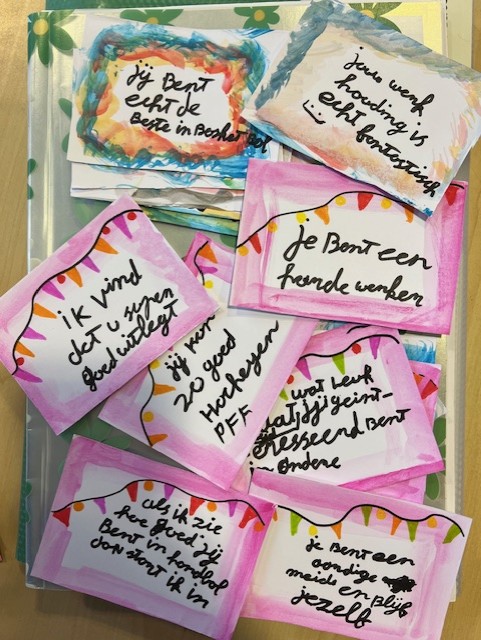 jij Bent
echt de
Beste in Basketbal
jouw werk
houding is
echt fantastisch
je Bent een
harde werker
ik vind
dat u super
goed uitlegt
jij kan
zo goed
Hockeyen
PFF
wat leuk
dat jij geïnt-
eresseerd Bent
in andere
als ik zie
hoe goed jij
Bent in handbal
dan stont ik in
je Bent een
aardige
meid en Blijf
jezelf